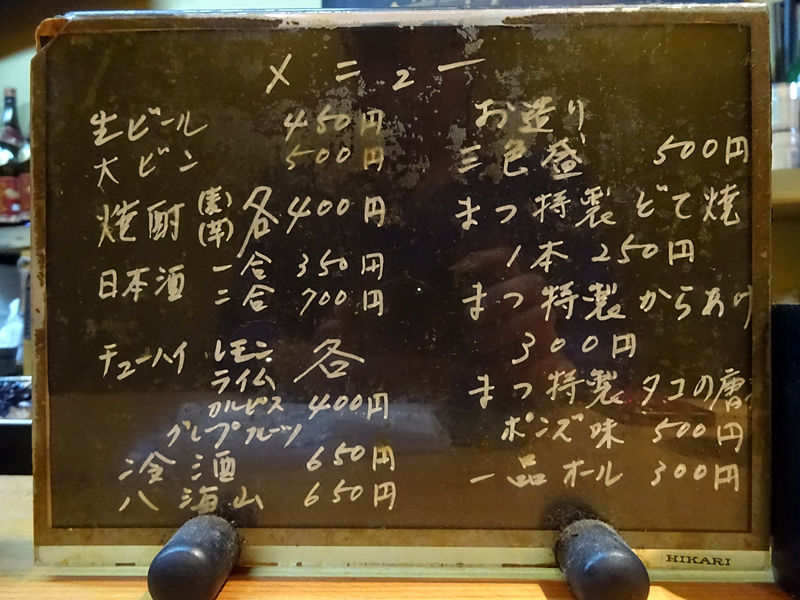 メニュー
生ビール 450円
大ビン 500円
焼酎 (麦) (芋) 各400円
日本酒 一合 350円
二合 700円
チューハイ レモン 各
ライム
カルピス 400円
グレープフルーツ
冷酒 650円
八海山 650円
お造り
三色盛 500円
まつ特製 どて焼
1本 250円
まつ特製 からあげ
300円
まつ特製 タコの唐
ポンズ味 500円
一品オール 300円
HIKARI